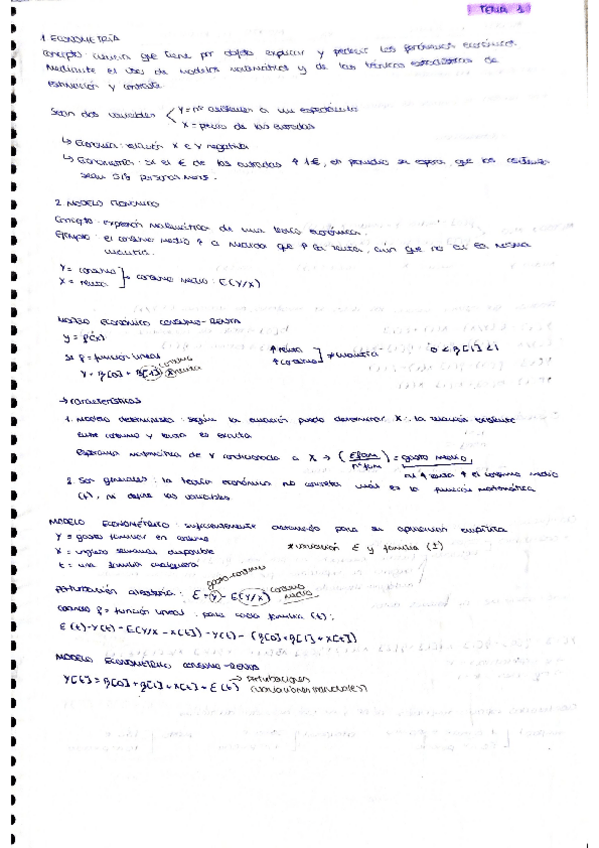 TEMA 1
1. ECONOMETRÍA
Concepto: ciencia que tiene por objeto explicar y predecir los fenómenos económicos.
Mediante el uso de modelos matemáticos y de las técnicas estadísticas de
estimación y contraste.
Sean dos variables Y = nº asistentes a un espectáculo
X = precio de las entradas
↳ Economía: relación X e Y negativa
↳ Econometría: si el € de las entradas ↑ 1€, en promedio se espera que los
sean personas menos.
2. MODELO ECONÓMICO
Concepto: expresión matemática de una teoría económica.
Ejemplo: el consumo medio ↑ a medida que ↑ la renta, aún que no en la misma
cuantía.
Y = consumo
X = renta
consumo medio: E(Y/X)
MODELO ECONÓMICO CONSUMO-RENTA
Y = f(x)
Si f = función lineal
consumo
Y = β[0] + β[1] X renta
↑ renta
↑ consumo
≠ cuantía
0 < β[1] < 1
→ características
1. Modelo determinista: según la ecuación puedo determinar X: la relación existente
entre consumo y renta es exacta
Esperanza matemática de Y condicionada a X → (Σfam / nº fam) = gasto medio
2. Son generales: la teoría económica no concreta cuál es la función matemática
(f), ni define las variables
MODELO ECONOMÉTRICO: suficientemente detallado para su aplicación empírica
Y = gasto familiar en consumo
X = ingreso semanal disponible
t = una familia cualquiera
gasto consumo
Perturbación aleatoria: E = Y - E(Y/X) consumo medio
cuando f = función lineal: para cada familia (t):
E(t) = Y(t) - E(Y/X = X[t]) = Y(t) - (β[0] + β[1] + X[t])
MODELO ECONOMÉTRICO CONSUMO-RENTA
Y[t] = β[0] + β[1] + X[t] + E(t) → perturbaciones